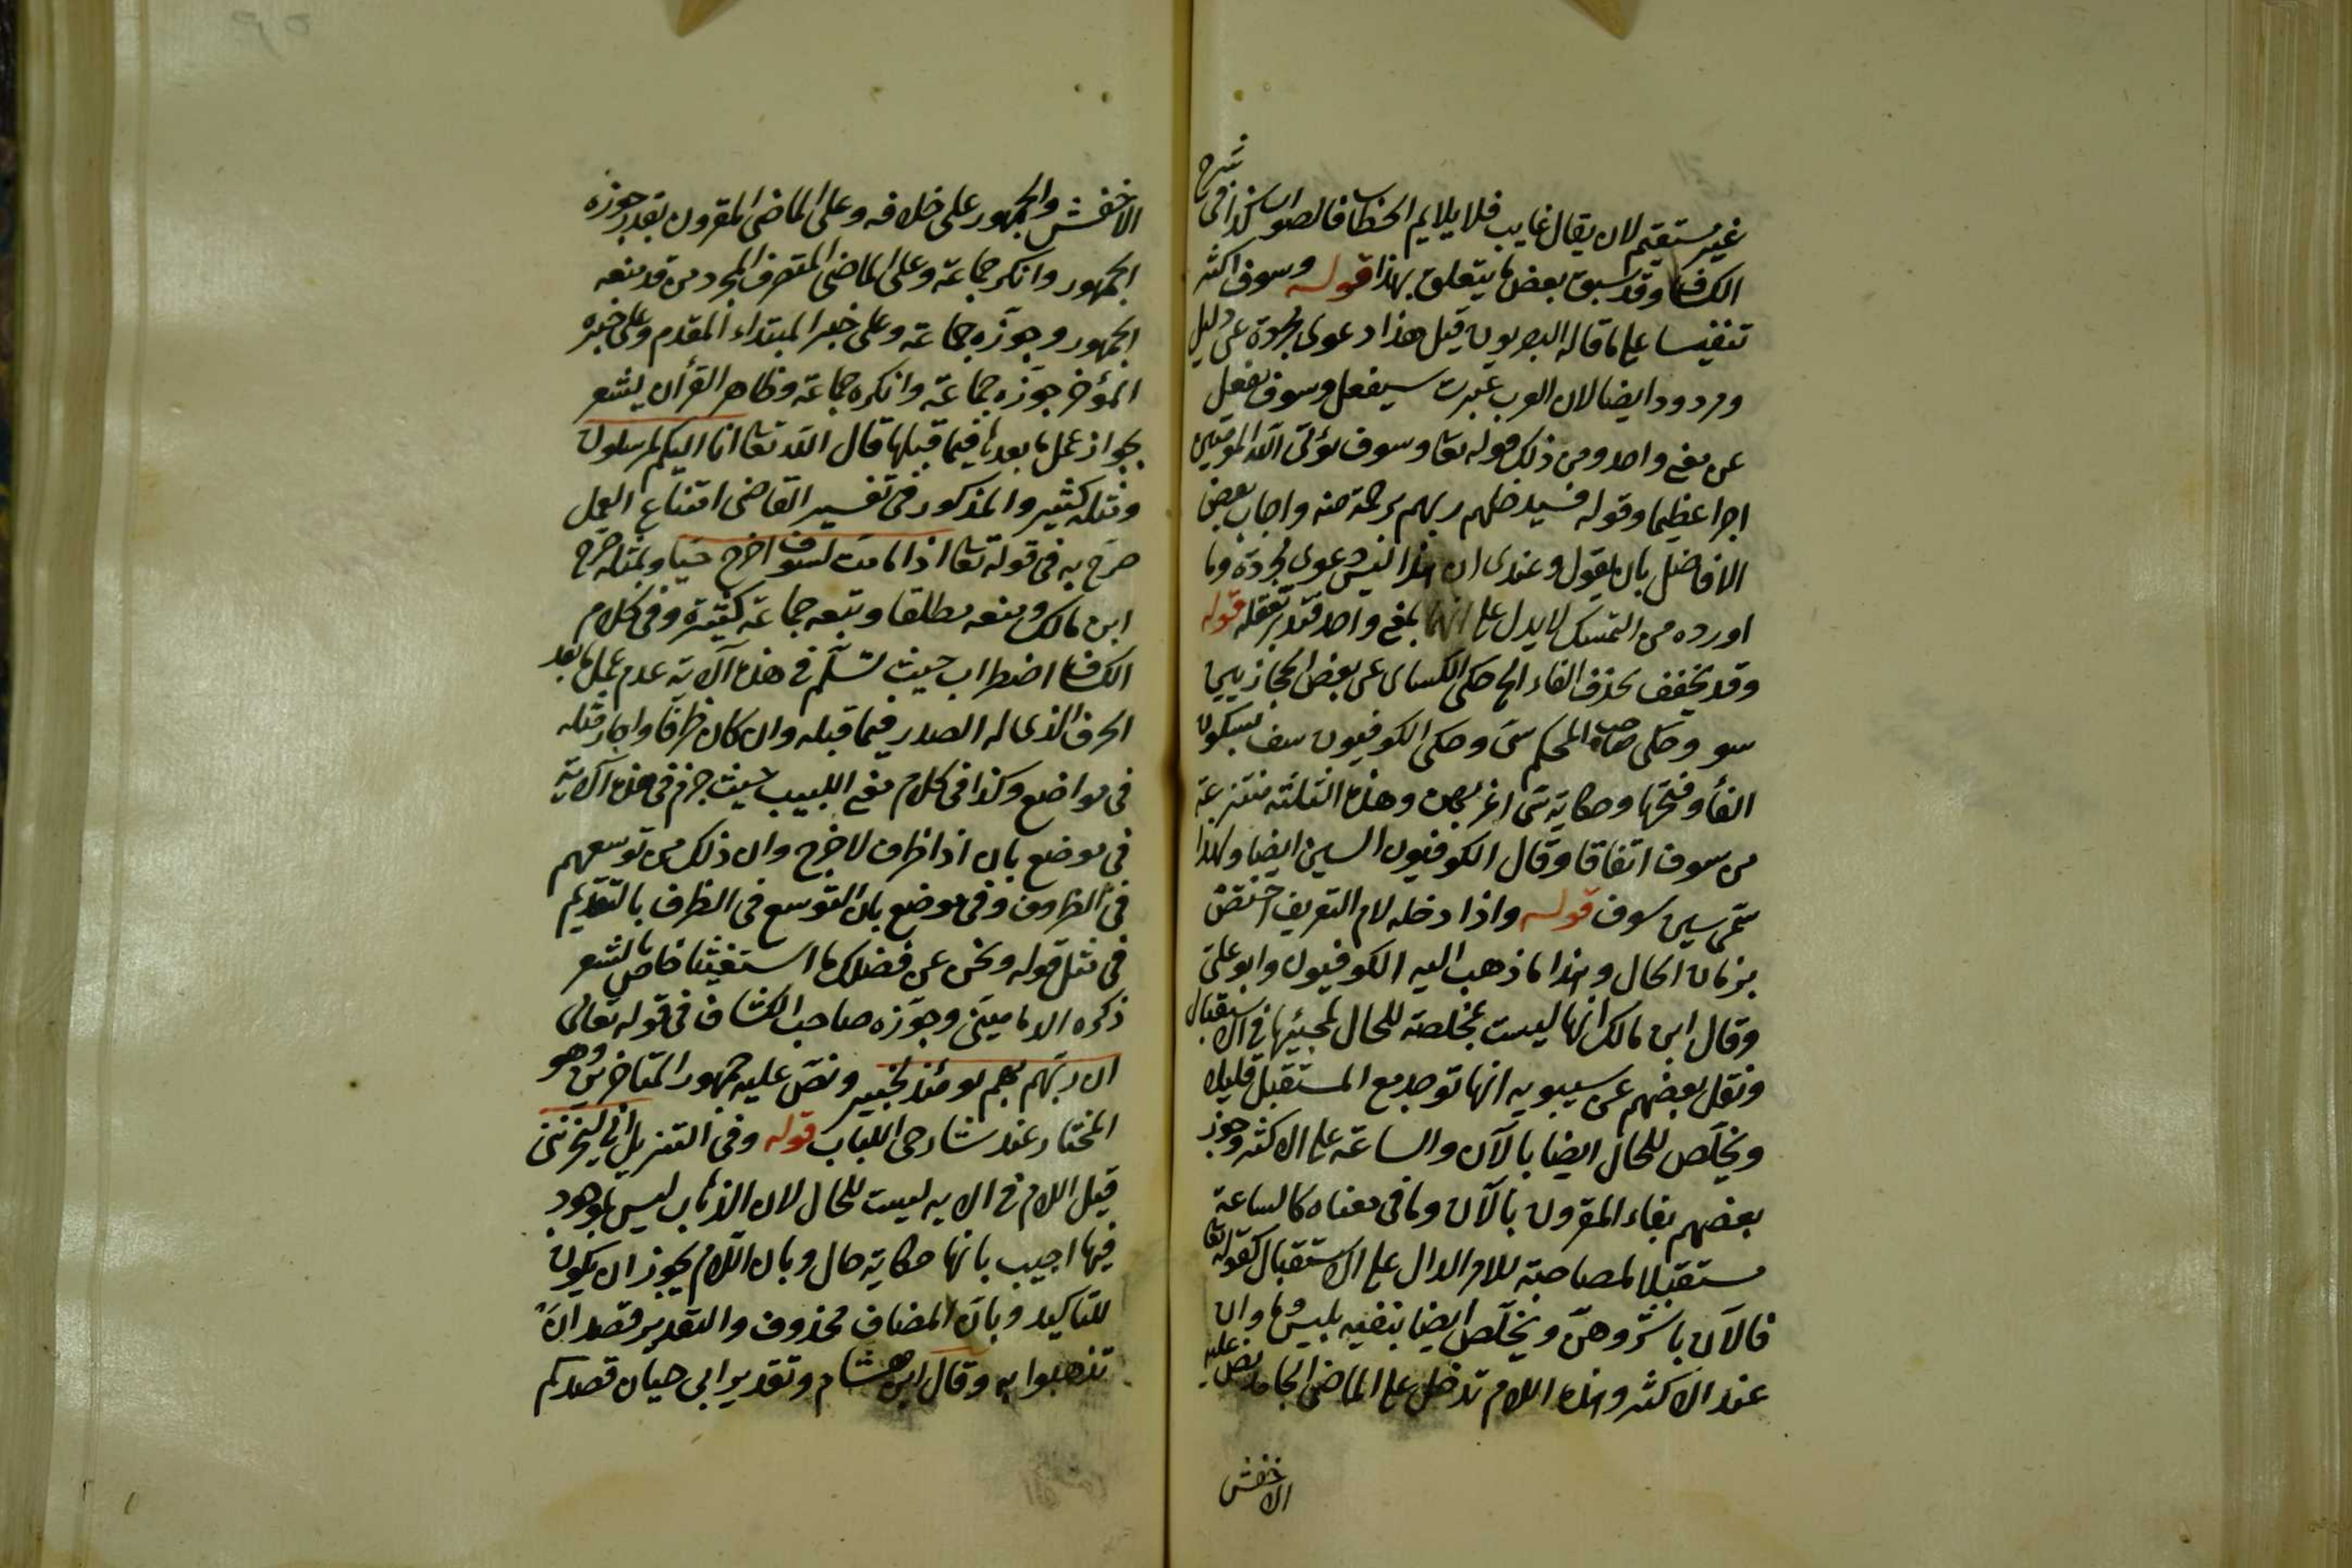 غير مستقيم لان يقال غايب فلا يلايم الخطاب فالصواب كذا فى شرح
الكشاف وقد سبق بعض ما يتعلق بهذا قوله وسوف اكثر
تنفيسا على ما قاله البصريون قيل هذا دعوى مجردة عن دليل
ومردود ايضا لان العرب عبرت سيفعل وسوف يفعل
عن معنى واحد ومن ذلك قوله تعا وسوف يؤتى الله المؤمنين
اجرا عظيما وقوله فسيدخلهم ربهم برحمة منه واجاب بعض
الافاضل بان يقول وعندى ان هذا ليس دعوى مجردة وما
اورده من التمسك لا يدل على انهما بمعنى واحد فتدبر تعقله قوله
وقد يخفف بحذف الفاء الخ حكى الكسائى عن بعض الحجازيين
سو وحكى صاحب المحكم سى وحكى الكوفيون سف بسكون
الفأ وفتحها وحكاية سى اغربهن وهذه الثلثة منتزعة
من سوف اتفاقا وقال الكوفيون السين ايضا ولهذا
سمى سين سوف قوله واذا دخله لام التعريف اختص
بزمان الحال وهذا ما ذهب اليه الكوفيون وابو على
وقال ابن مالك انها ليست مخلصة للحال لمجيئها فى الاستقبال
ونقل بعضهم عن سيبويه انها توجد مع المستقبل قليلا
ويخلص للحال ايضا بالآن والساعة على الاكثر وجوز
بعضهم بقاء المقرون بالآن وما فى معناه كالساعة
مستقبلا لمصاحبة للامر الدال على الاستقبال كقوله تعا
فالآن باشروهن ويخلص ايضا بنفيه بليس وما وان
عند الاكثر وهذه اللام تدخل على الماضى الجامد نص عليه
الاخفش
الاخفش والجمهور على خلافه وعلى الماضى المقرون بقد جوزه
الجمهور وانكر جماعة وعلى الماضى المتصرف المجرد من قد منعه
الجمهور وجوزه جماعة وعلى خبر المبتداء المقدم وعلى خبره
المؤخر جوزه جماعة وانكره جماعة وظاهر القرأن يشعر
بجواز عمل ما بعدها فيما قبلها قال الله تعا انا اليكم لمرسلون
ومثله كثير والمذكور فى تفسير القاضى امتناع العمل
صرح به فى قوله تعا اذا ما مت لسوف اخرج حيا وبمثله صرح
ابن مالك ومنعه مطلقا وتبعه جماعة كثيرة وفى كلام
الكشاف اضطراب حيث تسلم فى هذه الآية عدم عمل ما بعد
الحرف الذى له الصدر فيما قبله وان كان ظرفا واجاز مثله
فى مواضع وكذا فى كلام مغنى اللبيب حيث جزم فى هذه الآية
فى موضع بان اذا ظرف لاخرج وان ذلك من توسعهم
فى الظروف وفى موضع بان التوسع فى الظرف بالتقديم
فى مثل قوله ونحن عن فضلك ما استغنينا خاص بالشعر
ذكره الدمامينى وجوزه صاحب الكشاف فى قوله تعالى
ان ربهم بهم يومئذ لخبير ونص عليه جمهور المتاخرين وهو
المختار عند شارحى اللباب قوله وفى التنزيل انى ليحزننى
قيل اللام فى الاية ليست للحال لان الذهاب ليس بموجود
فيها اجيب بانها حكاية حال وبان اللام يجوز ان يكون
للتاكيد وبان المضاف محذوف والتقدير قصد ان
تذهبوا به وقال ابن هشام وتقدير ابى حيان قصدكم